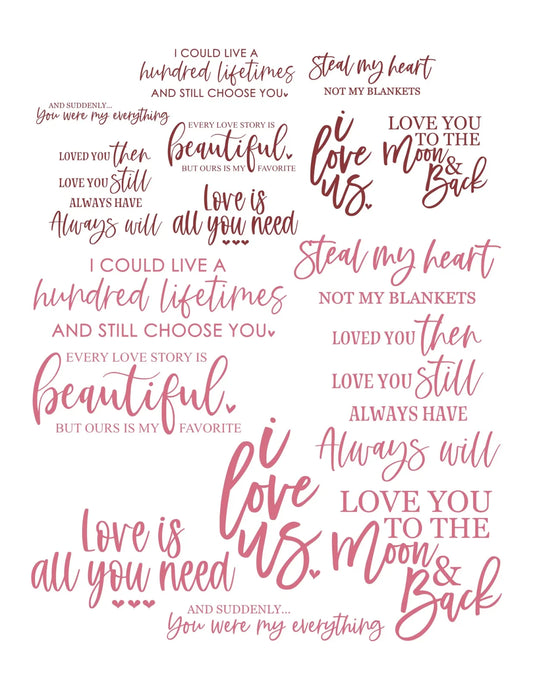 I COULD LIVE A
hundred lifetimes
AND STILL CHOOSE YOU
Steal my heart
NOT MY BLANKETS
AND SUDDENLY...
You were my everything
EVERY LOVE STORY IS
beautiful.
BUT OURS IS MY FAVORITE
i
love
us.
LOVE YOU
TO THE
Moon
&
Back
LOVED YOU then
LOVE YOU Still
ALWAYS HAVE
Always will
Love is
all you need
I COULD LIVE A
hundred lifetimes
AND STILL CHOOSE YOU
Steal my heart
NOT MY BLANKETS
LOVED YOU then
LOVE YOU Still
ALWAYS HAVE
Always will
EVERY LOVE STORY IS
beautiful.
BUT OURS IS MY FAVORITE
i
love
us.
LOVE YOU
TO THE
Moon
&
Back
Love is
all you need
AND SUDDENLY...
You were my everything